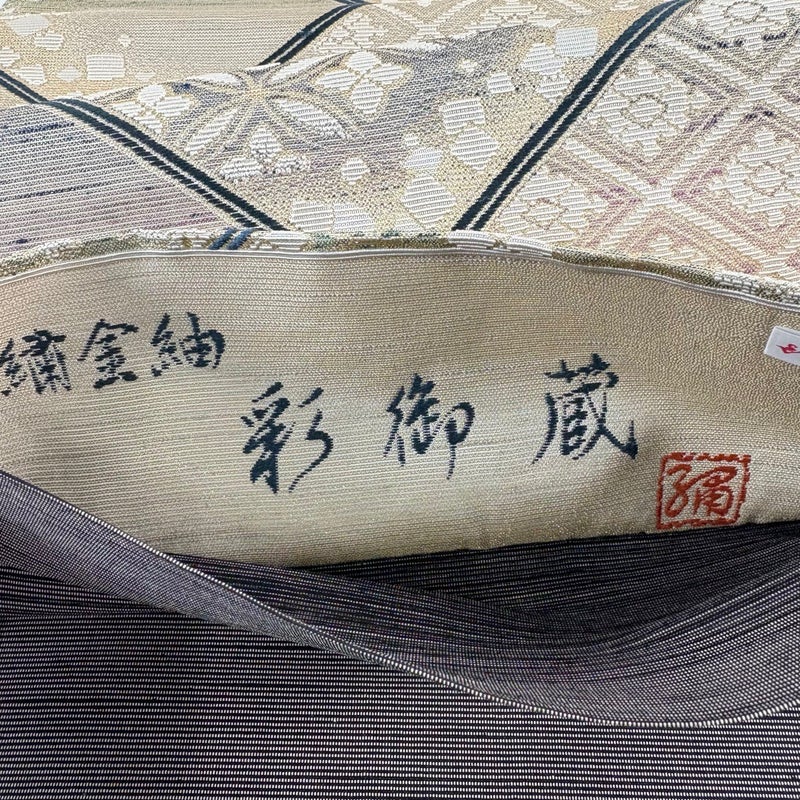 繍金紬
彩御蔵
繍